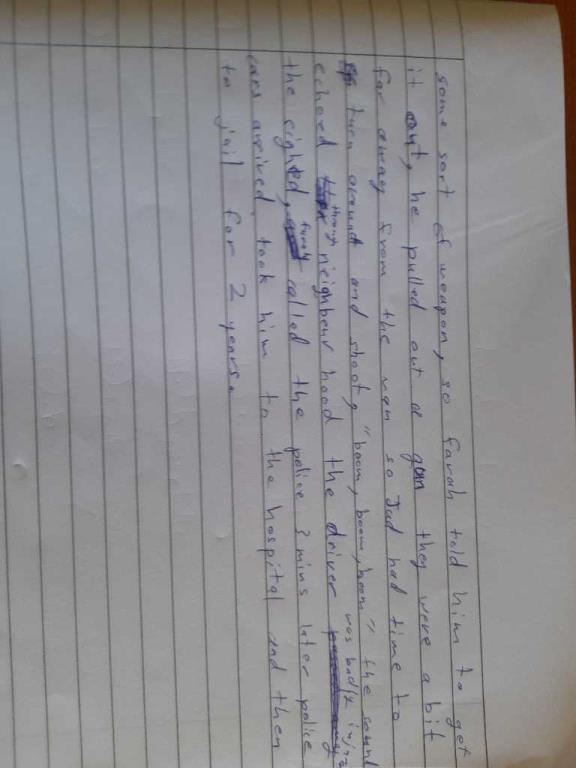 some sort of weapon, so farah told him to get
it out, he pulled out a gun they were a bit
far away from the man so Jad had time to
turn around and shoot, "boom, boom, boom" the sound
echoed through neighbeur hood the driver was badly
the called the police 3 mins later police
cars arrived took him to the hospital and then
to jail for 2 years.